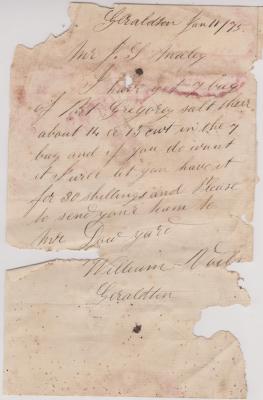 Geraldton Jan 11/75
Mr J. S.
I have got 7 bag
of Port Gregorey salt their
about 14 or 15 cwt in the 7
bag and if you do want
it I will let you have it
for 30 shillings and Please
to send your team to
Mr Dow yard
William
Geraldton